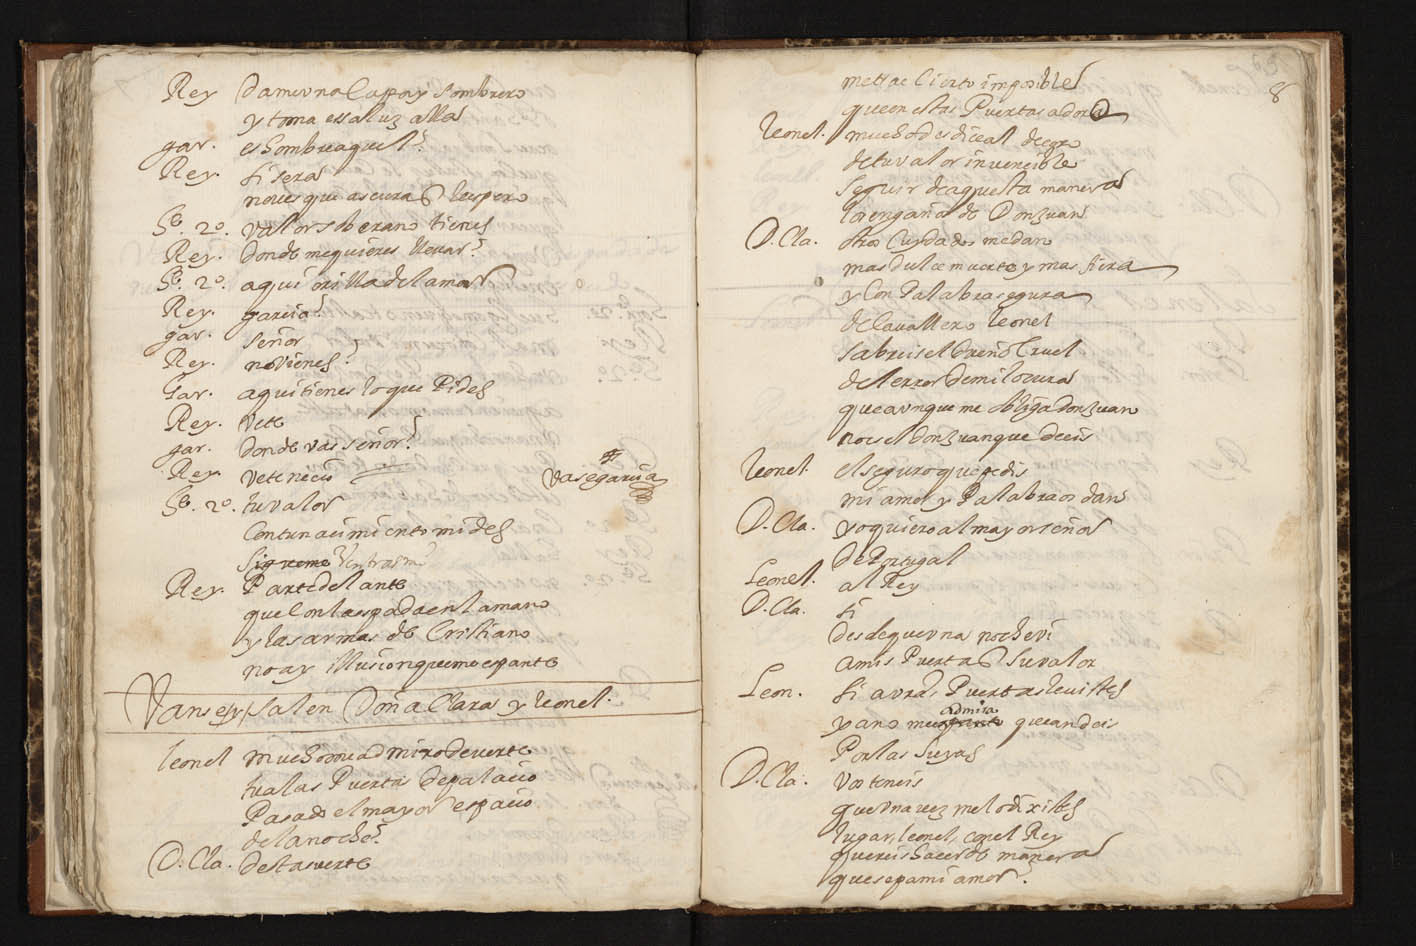 Rey dame una Capa y sombrero
y toma essa luz alla
gar. es hombre aquel?
Rey. si sera
no ves que as cura le espero
Sb. 2º. valor soberano tienes
Rey. donde me quieres llevar?
Sb. 2º. aqui orilla del a mar
Rey. garcia?
gar. señor
Rey. no vienes?
Gar. aqui tienes lo que Pides
Rey. vete
gar. donde vas señor?
Rey. vete necio vase garcia
Sb. 2º. tu valor
Con tu nacimiento mides
Sigueme
Rey. Parte delante
que Con la espada en la mano
y las armas de Cristiano
no ay illusion que me espante
Vanse y salen Doña Clara y leonel.
leonel mucho me admiro de verte
tu a las Puertas de palacio
Pasado el mayor espacio
de la noche?
D. Cla. desta suerte
8
me trae Cierto imposible
que en estas Puertas adora
leonel. mucho desdice al decoro
de tu valor invencible
Seguir de aquesta manera
la engaña de Don Juan
D. Cla. otros Cuydados me dan
mas dulce muerte y mas fiera
y Con Palabra segura
de Cavallero leonel
sabreis el dueño Cruel
del error de mi locura
que aunque me obliga don Juan
no es el don Juan que decis
leonel. el seguro que pedis
mi amor y Palabra os dan
D. Cla. yo quiero al mayor señor
de Portugal
Leonel. al Rey
D. Cla. si
desde que una noche vi
a mis Puertas Su valor
Leon. si a vras Puertas le vistes
ya no me admira que andeis
Por las Suyas
D. Cla. vos teneis
que una vez me lo dixistes
lugar, leonel, con el Rey
quereis hacer de manera
que sepa mi amor?